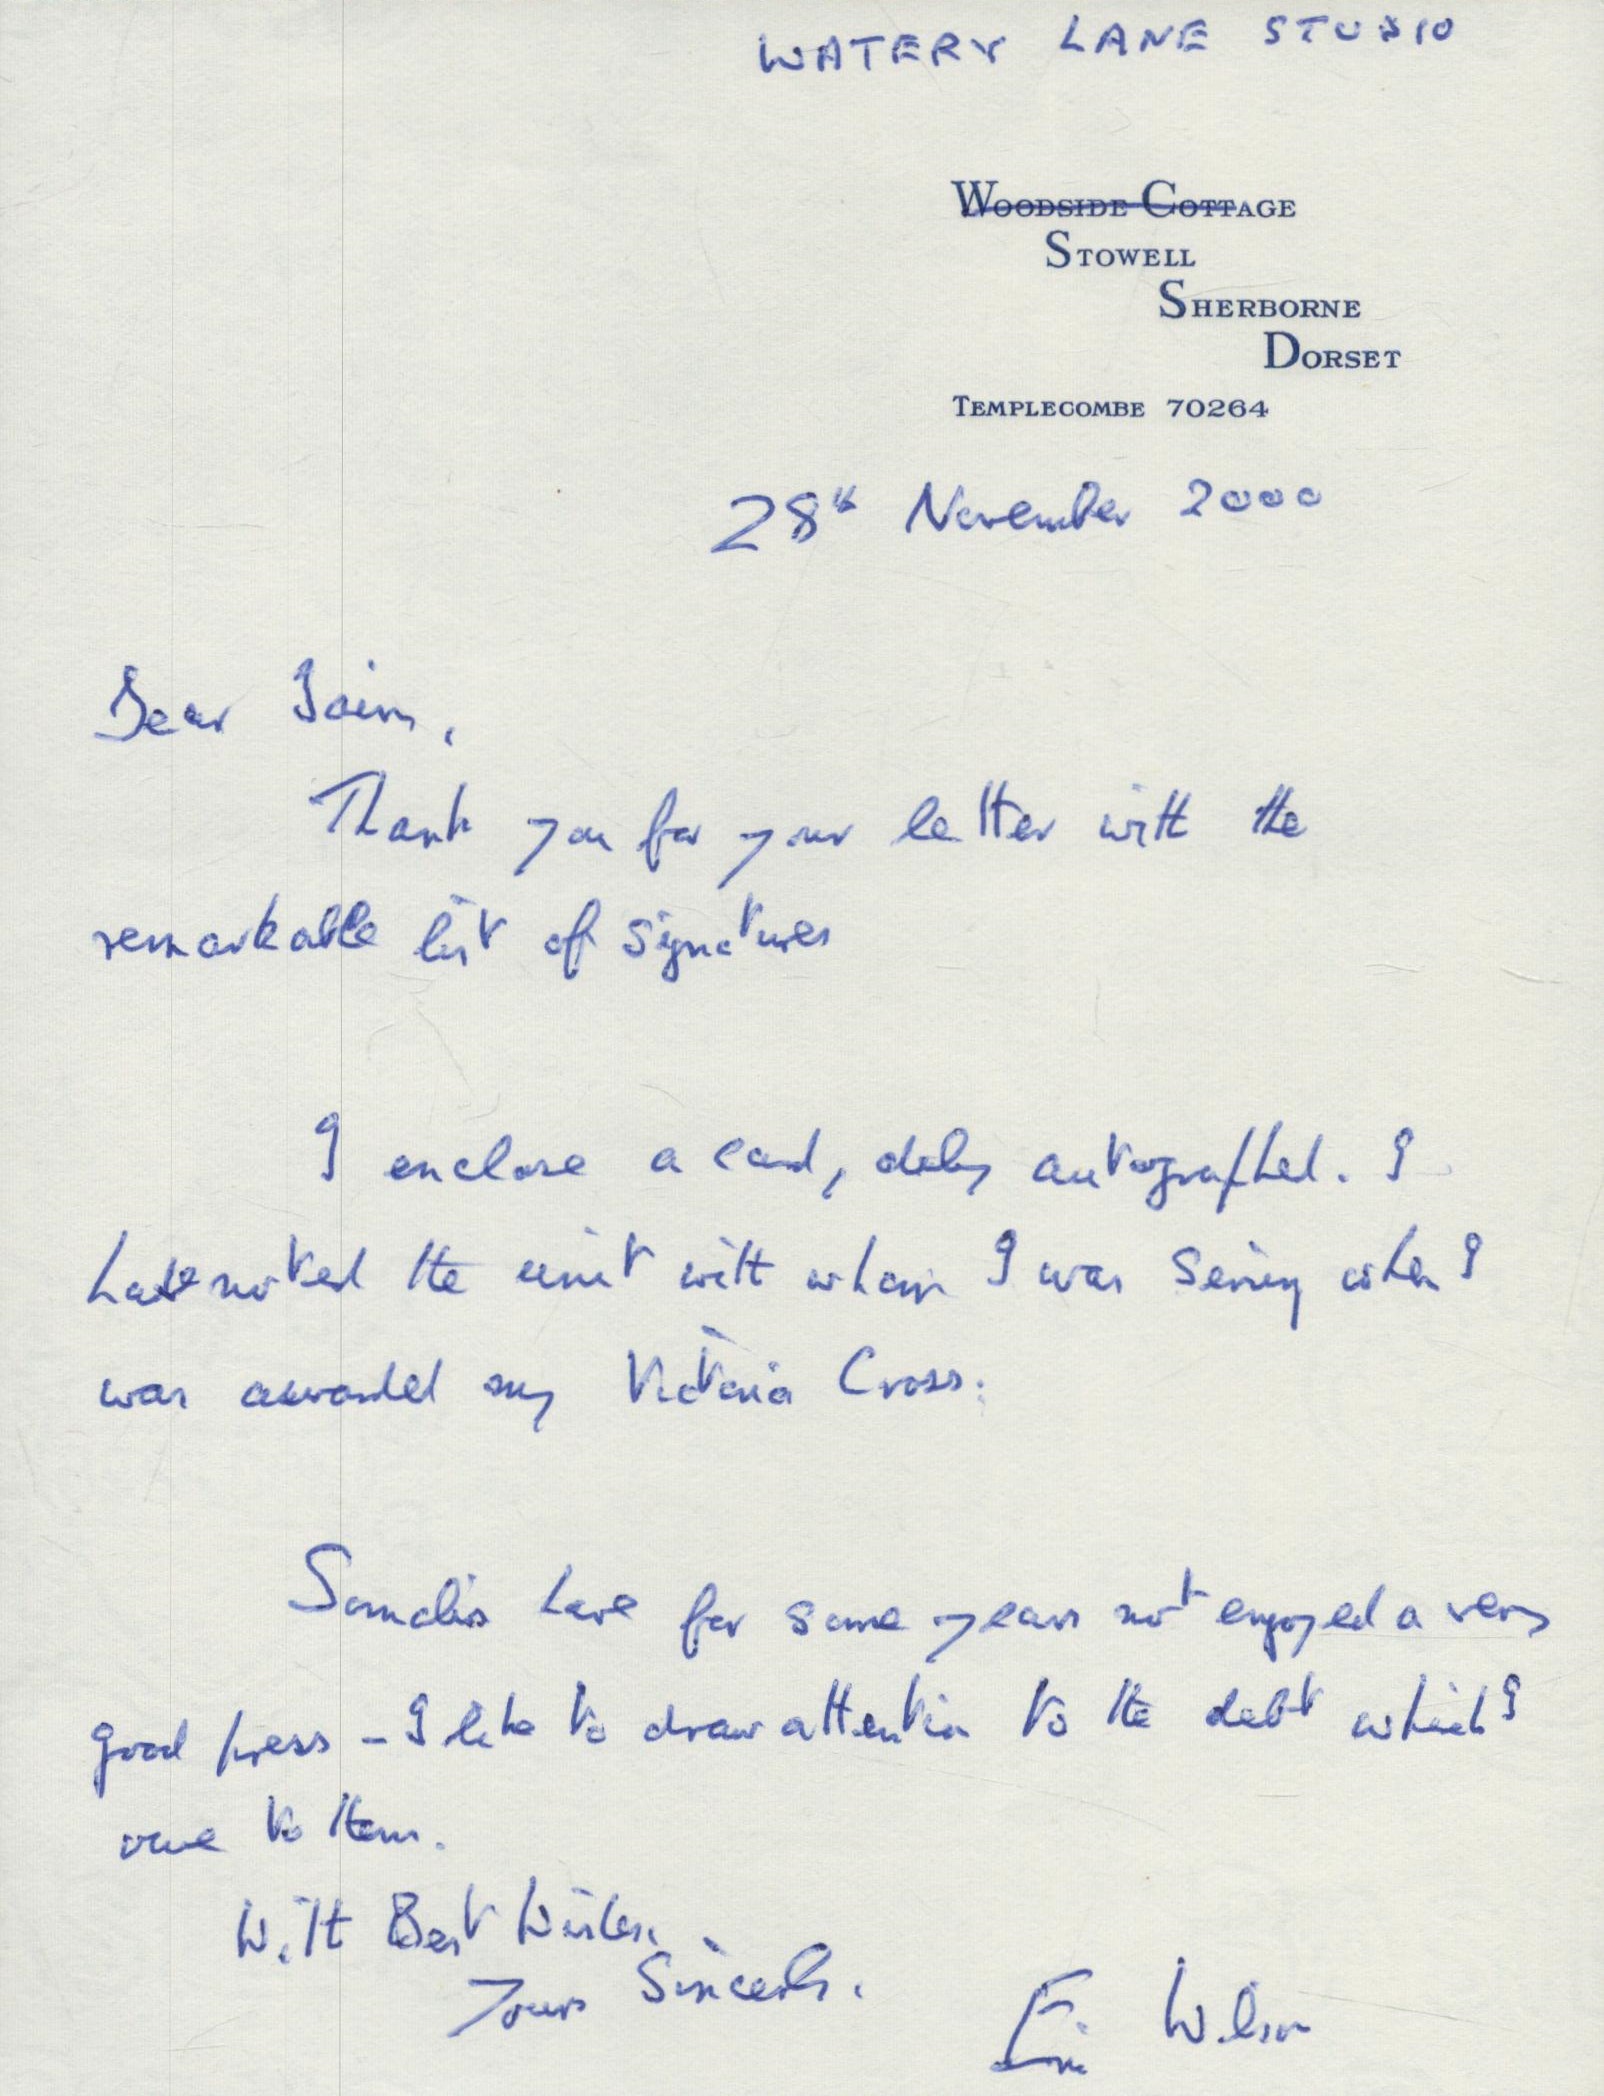 WATERY LANE STUDIO
WOODSIDE COTTAGE
STOWELL
SHERBORNE
DORSET
TEMPLECOMBE 70264
28th November 2000
Dear Iain,
Thank you for your letter with the
remarkable list of signatures
I enclose a card, duly autographed. I
have noted the unit with whom I was serving when I
was awarded my Victoria Cross.
Somalis have for some years not enjoyed a very
good press - I like to draw attention to the debt which I
owe to them.
With Best Wishes.
Yours Sincerely.
Eric Wilson